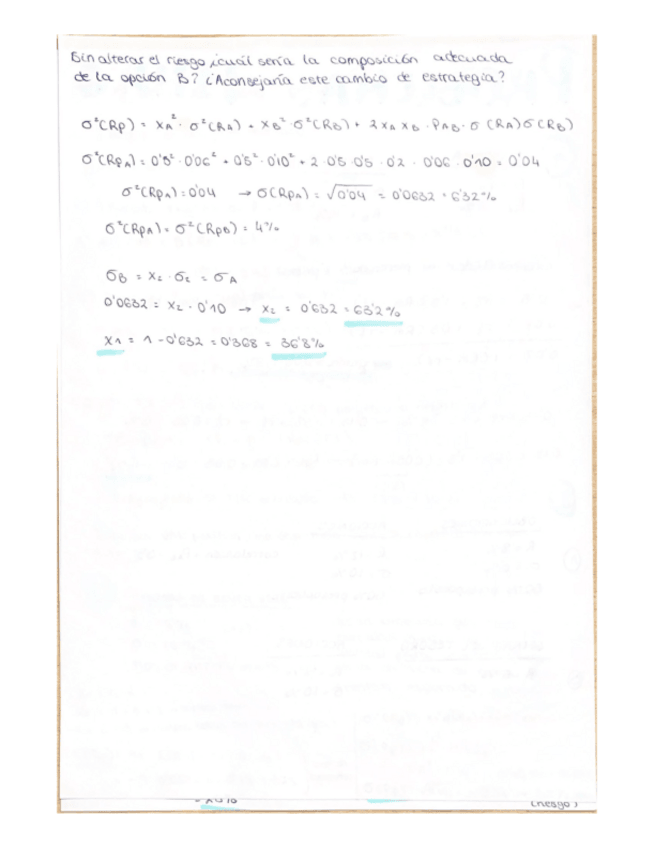 Sin alterar el riesgo ¿cuál sería la composición adecuada
de la opción B? ¿Aconsejaría este cambio de estrategia?
σ²(Rp) = XA² · σ²(RA) + XB² · σ²(RB) + 2 XA XB · PAB · σ (RA) σ(RB)
σ²(RpA) = 0'5² · 0'06² + 0'5² · 0'10² + 2 · 0'5 · 0'5 · 0'2 · 0'06 · 0'10 = 0'04
σ²(RpA) = 0'04 → σ(RpA) = √0'04 = 0'0632 = 6'32%
σ²(RpA) = σ²(RpB) = 4%
σB = X2 · σ2 = σA
0'0632 = X2 · 0'10 → X2 = 0'632 = 63'2%
X1 = 1 - 0'632 = 0'368 = 36'8%
(riesgo)